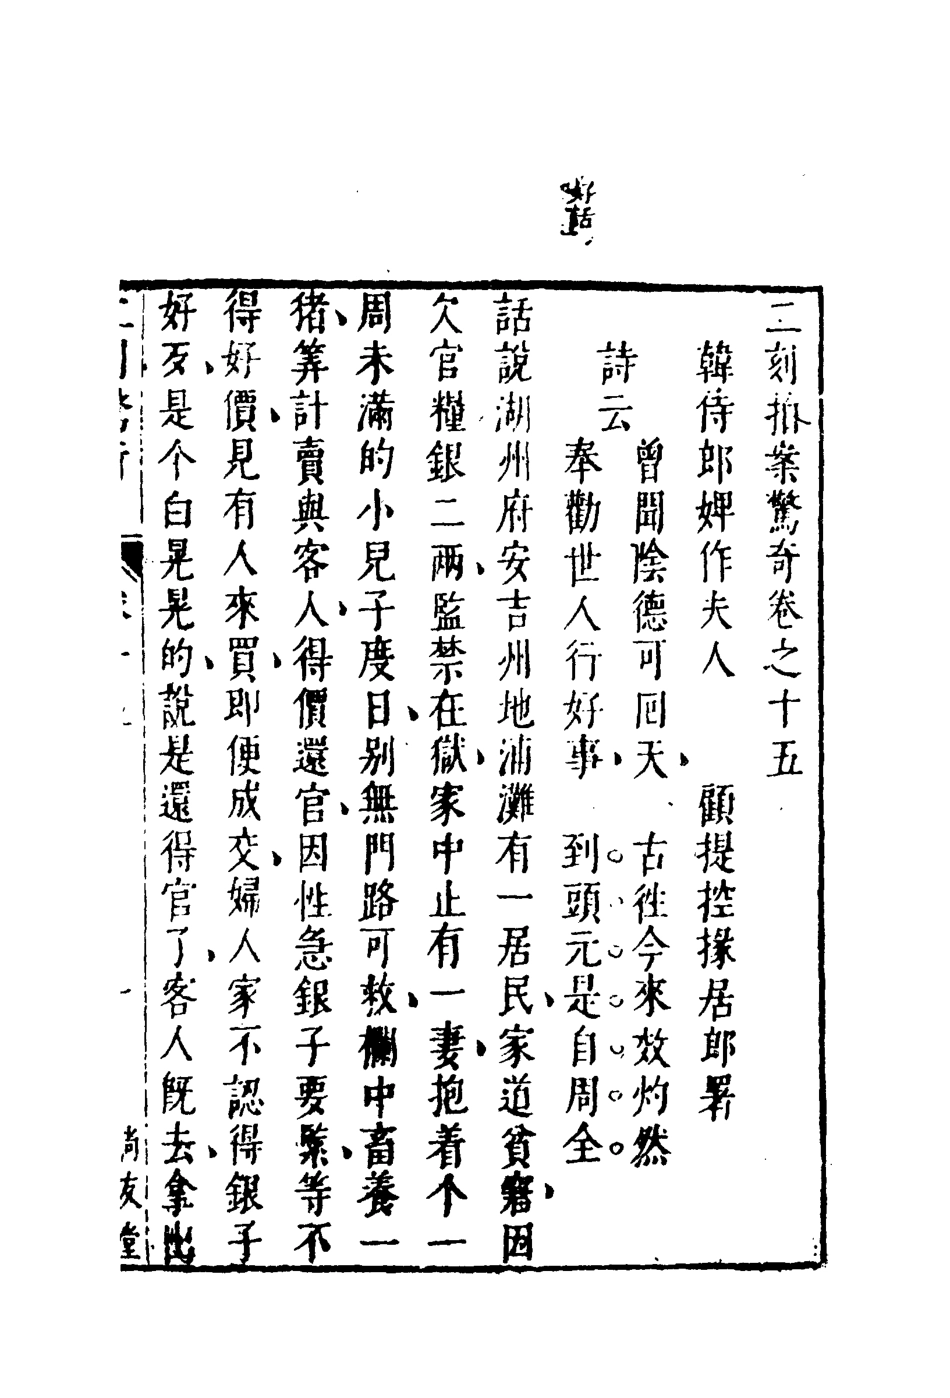 好話
二刻拍案驚奇卷之十五
韓侍郎婢作夫人　顧提控掾居郎署
詩云
曾聞陰德可囘天、古徃今來效灼然
奉勸世人行好事、到頭元是自周全
話說湖州府安吉州地浦灘有一居民、家道貧窘、因
欠官糧銀二兩、監禁在獄、家中止有一妻、抱着个一
周未滿的小兒子度日、别無門路可救、欄中畜養一
猪、筭計賣與客人、得價還官、因性急銀子要緊、等不
得好價、見有人來買、即便成交、婦人家不認得銀子
好歹、是个白晃晃的、說是還得官了、客人旣去、拿出
尚友堂